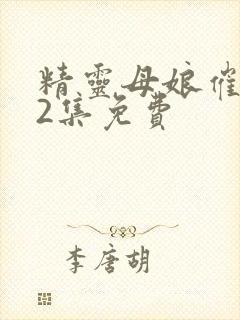 精靈母娘催
2集免費
李唐胡